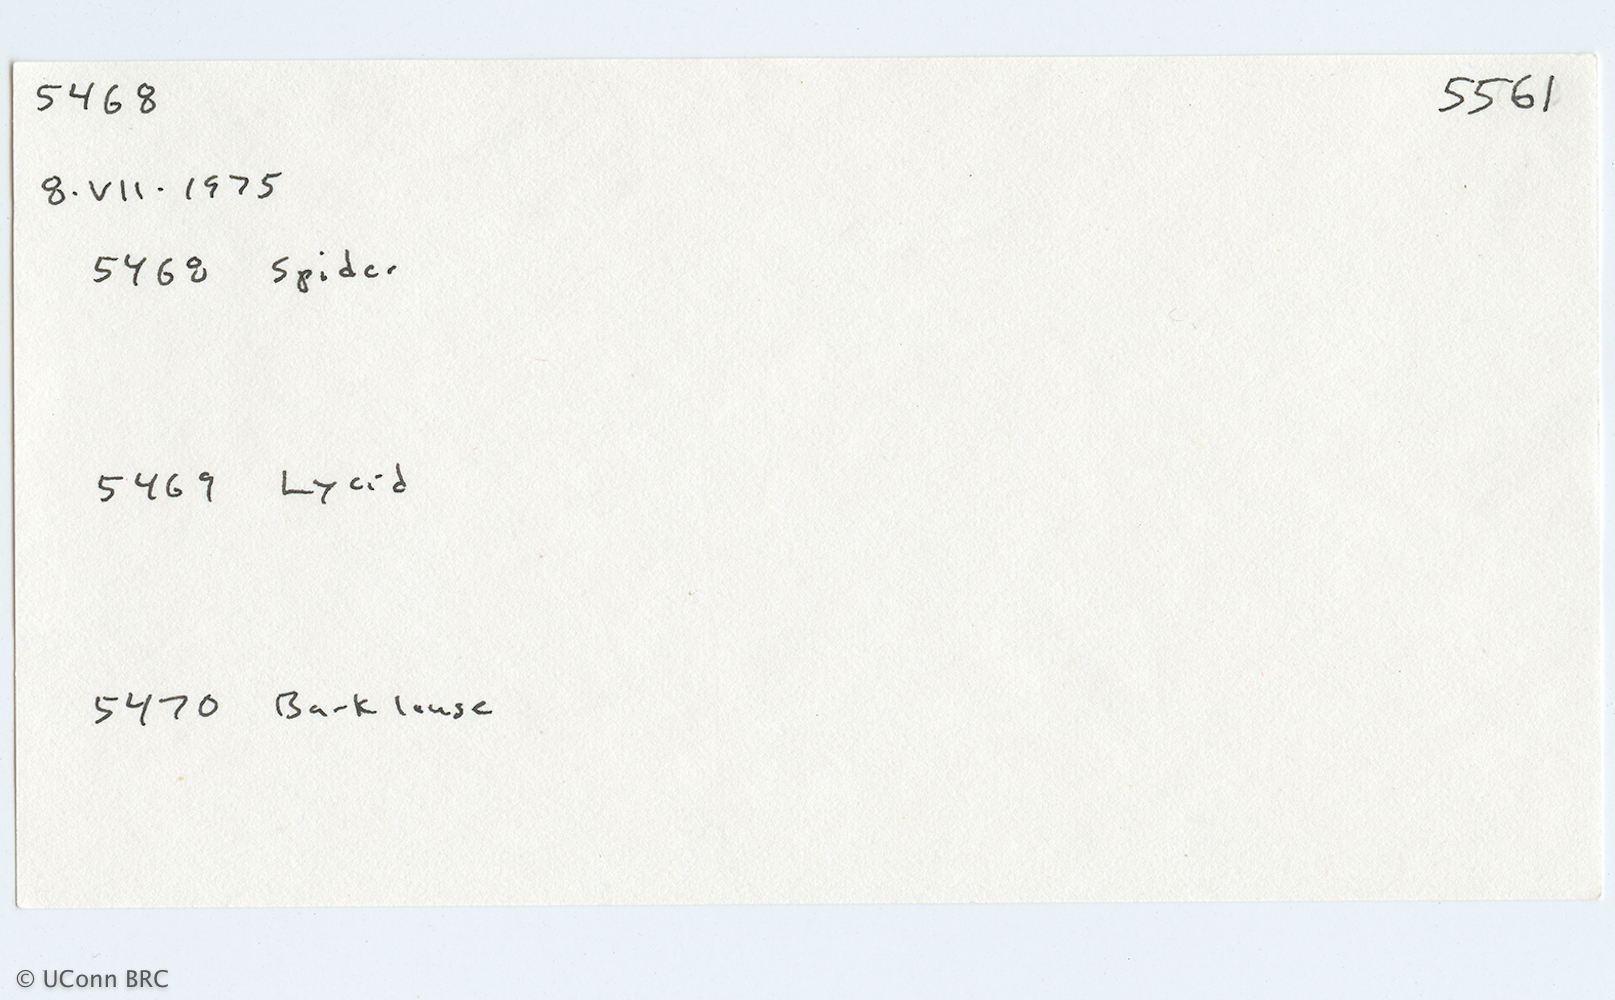 5468 5561
8.VII.1975
5468 Spider
5469 Lycid
5470 Bark louse
© UConn BRC